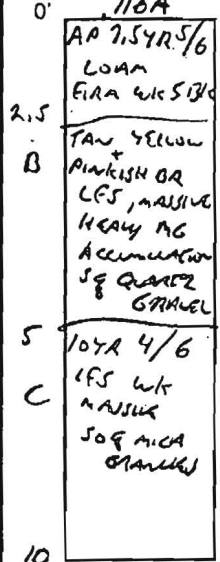 0' 118A
AP 7.5YR 5/6
LOAM
FIRM WK SBK
2.5
TAN YELLOW
+
B PINKISH BR
LFS, MASSIVE
HEAVY MG
ACCUMULATION
5% QUARTZ
GRAVEL
5 10YR 4/6
C LFS WK
MASSIVE
50% MICA
10